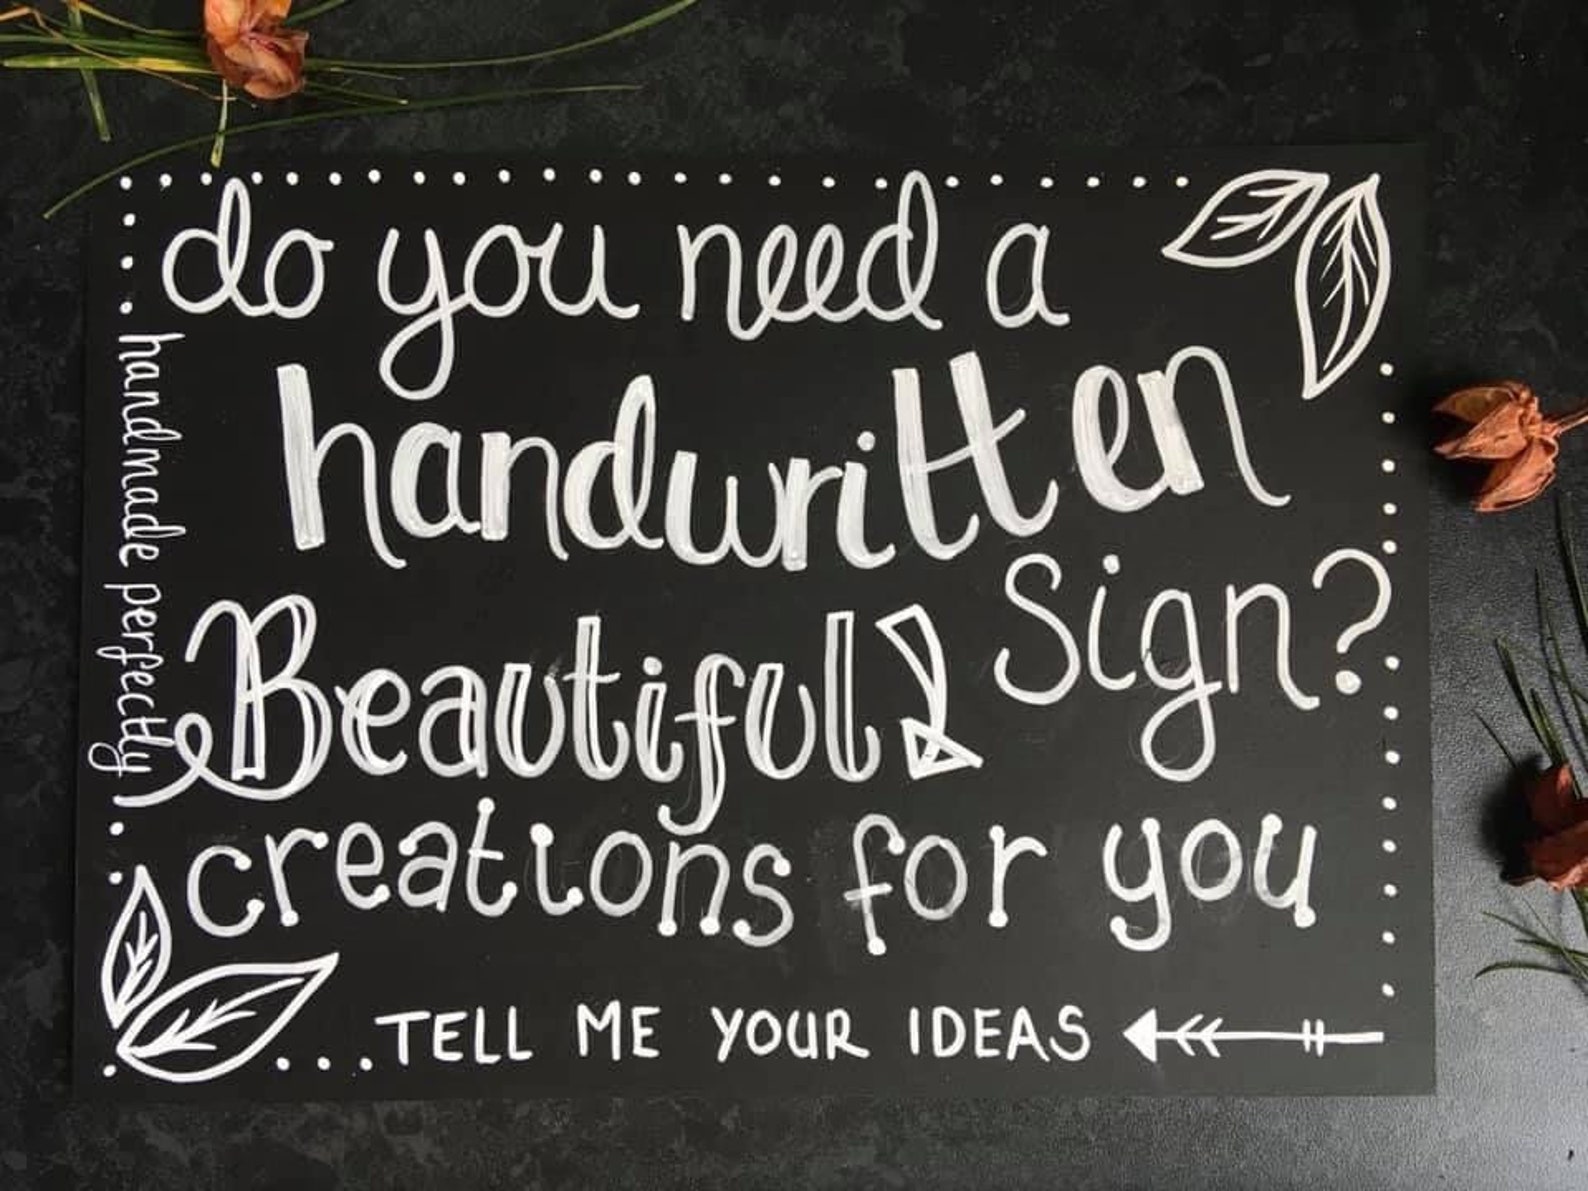 do you need a
handwritten
Sign?
Beautiful
creations for you
...TELL ME YOUR IDEAS
handmade perfectly